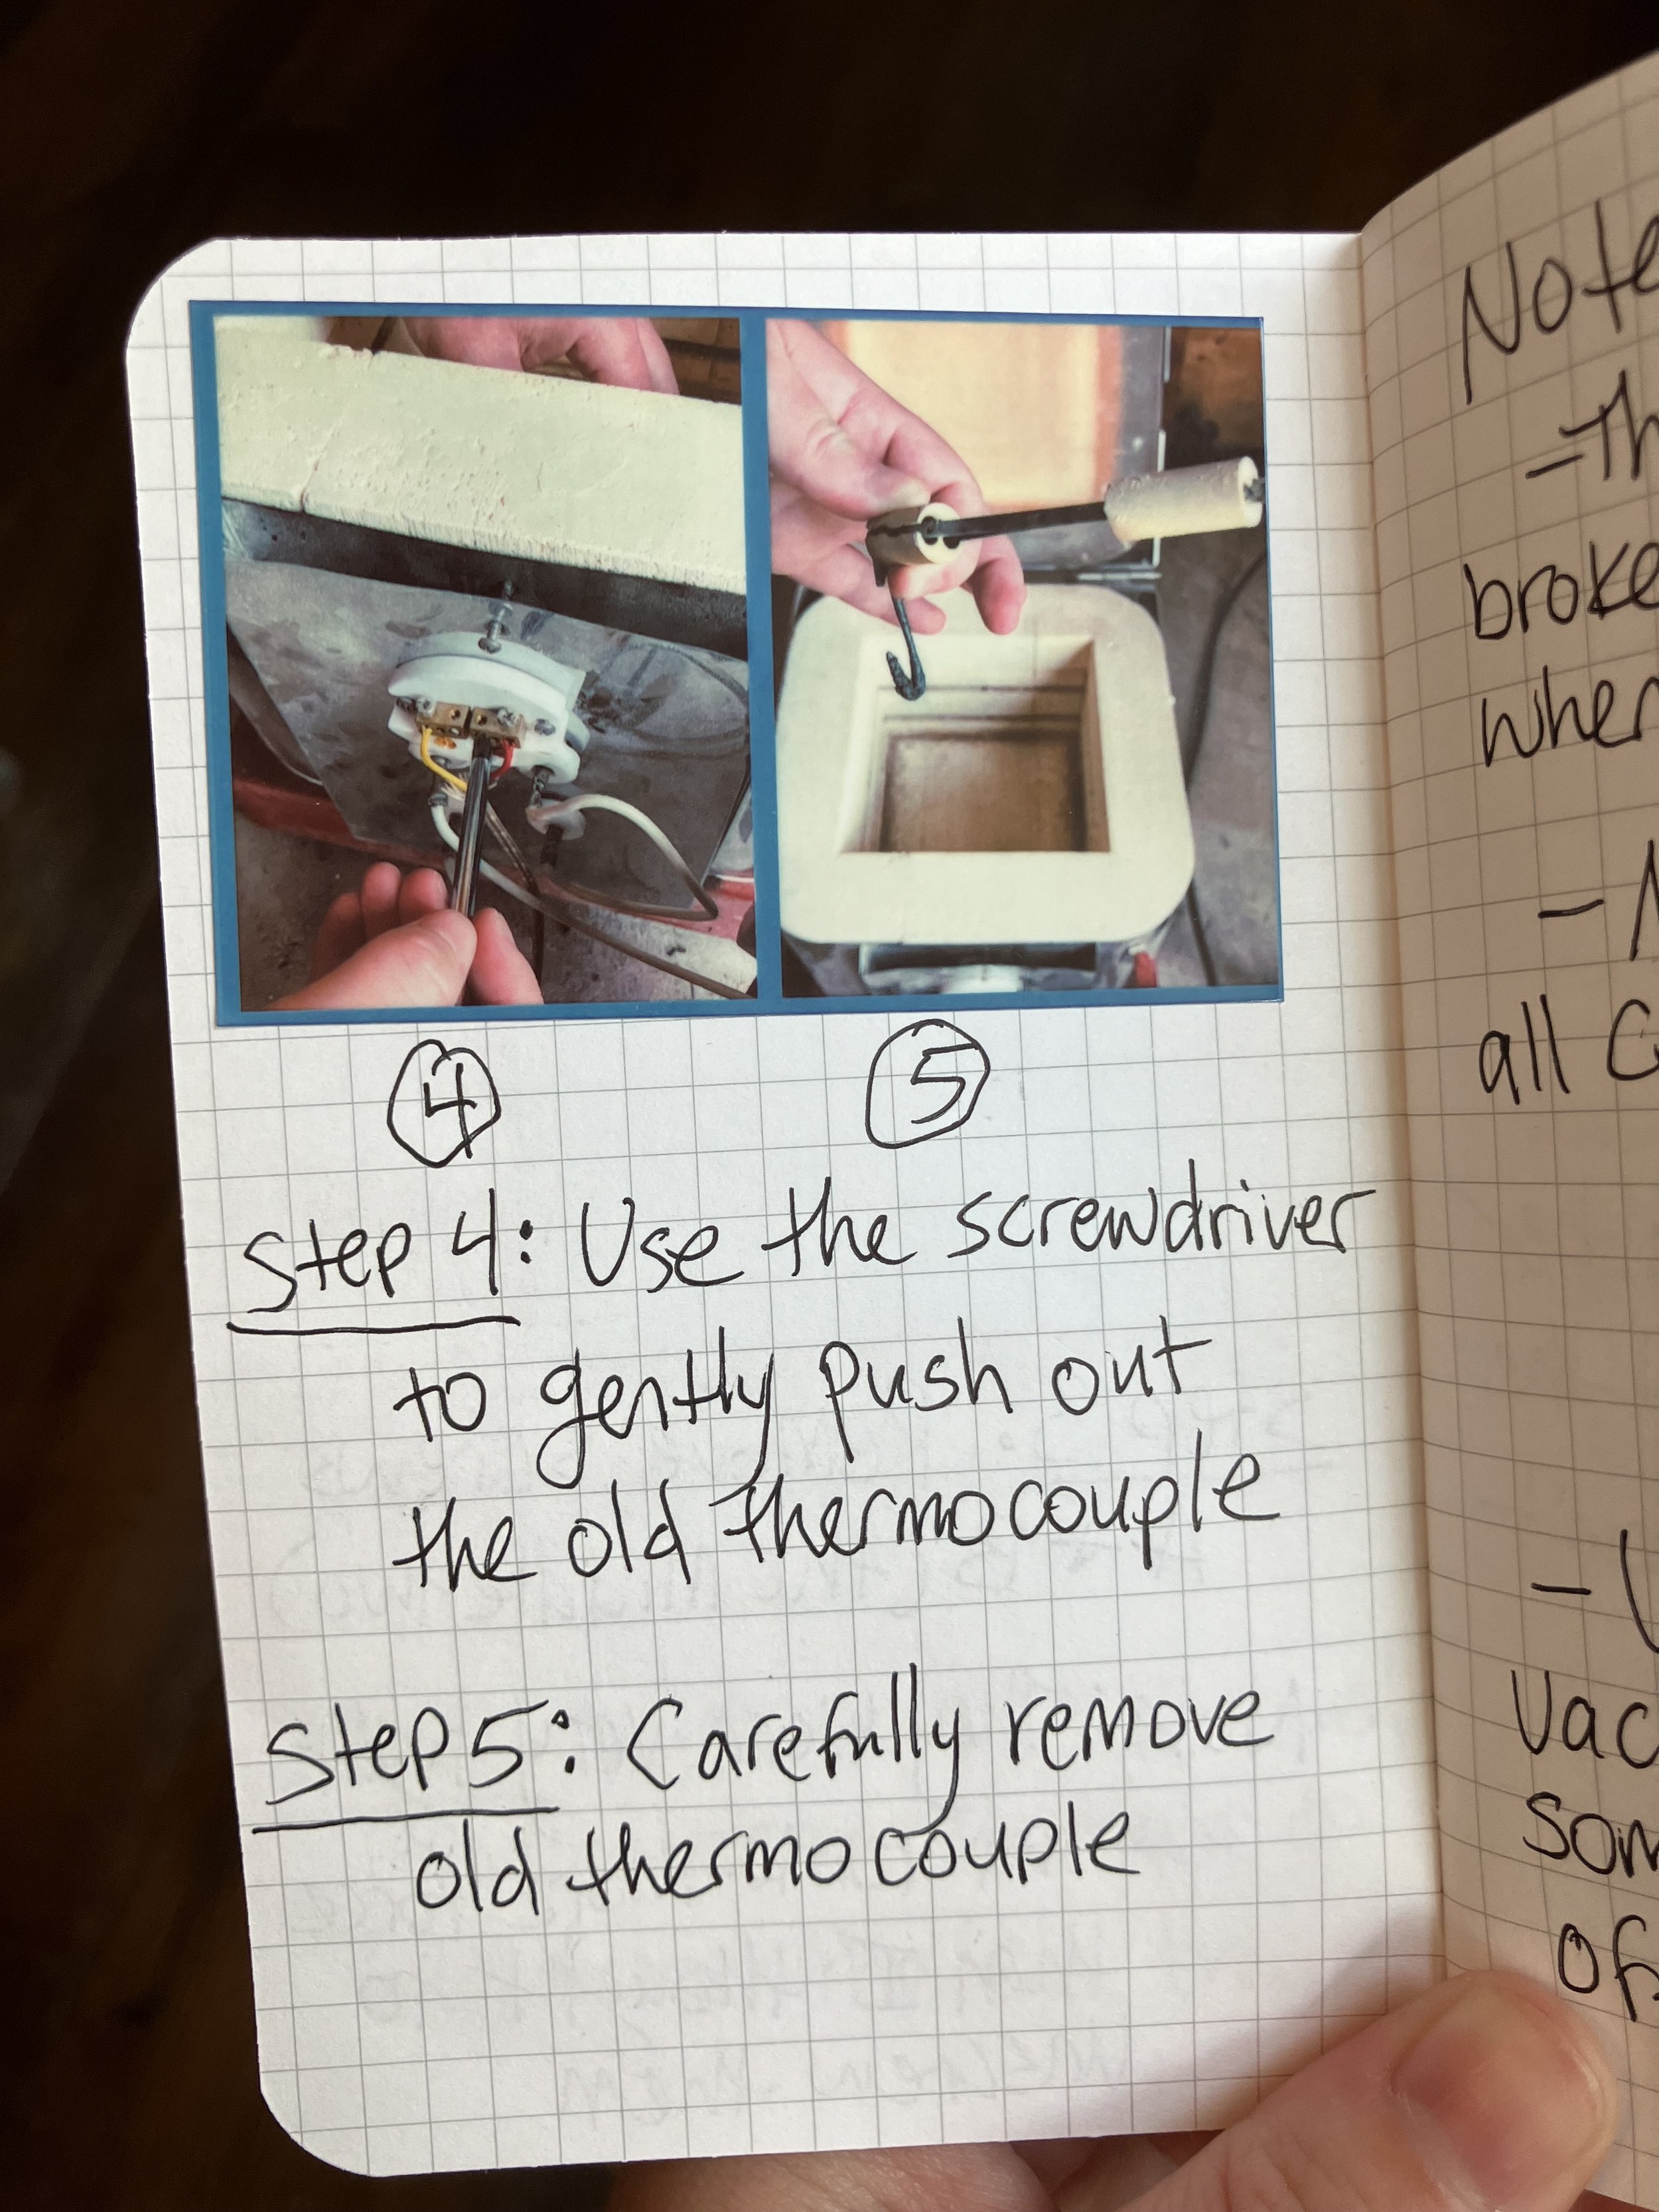 ④ ⑤
Step 4: Use the screwdriver
to gently push out
the old thermocouple
Step 5: Carefully remove
old thermocouple
Note
-Th
broke
when
-
all
-
Vac
Som
of